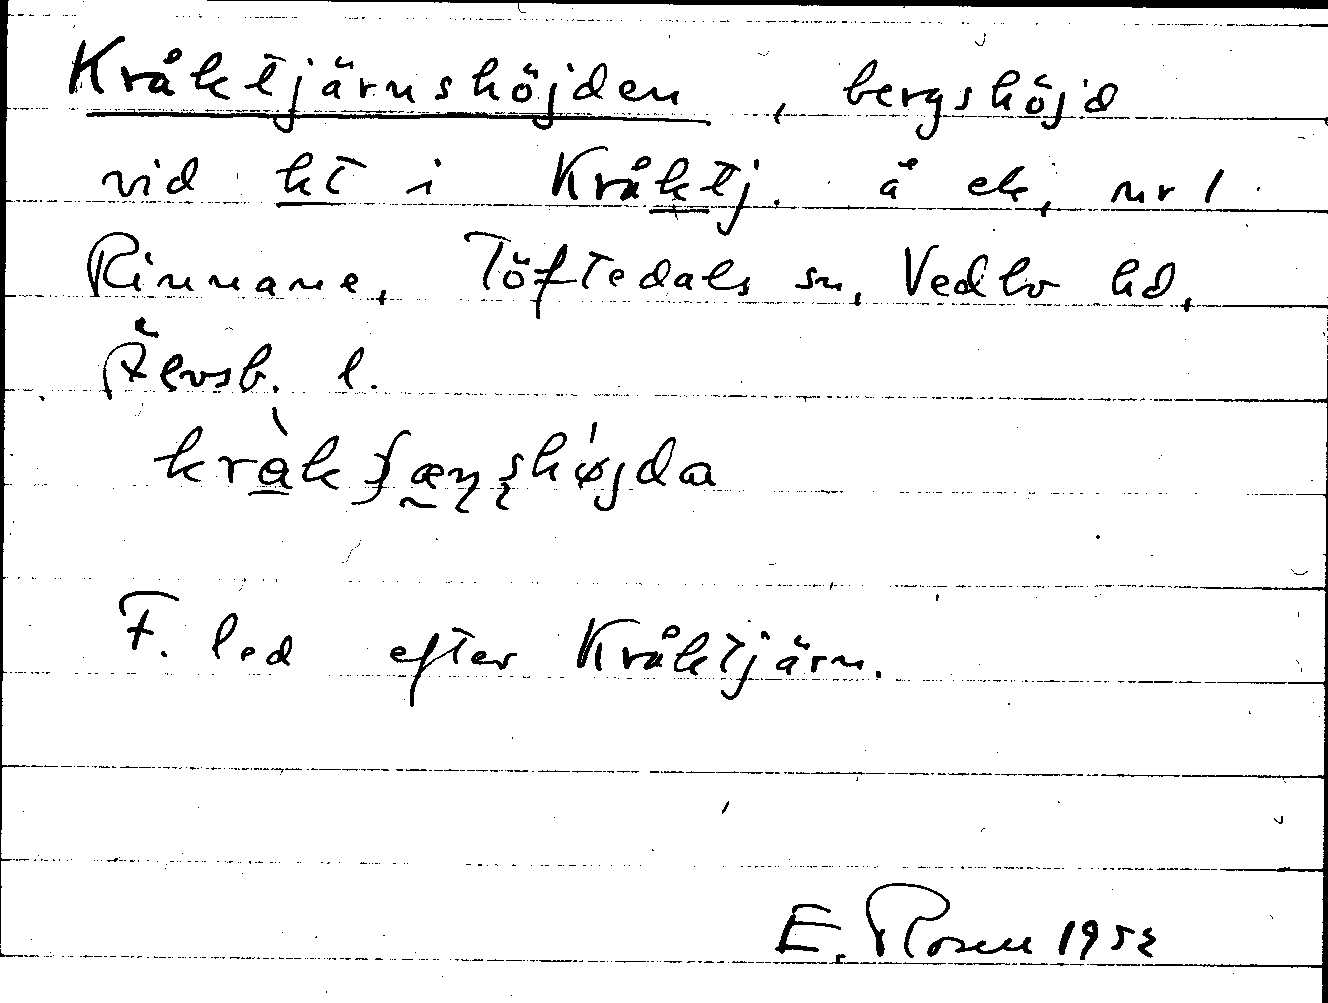 Kråktjärnshöjden, bergshöjd
vid kt i Kråktj. å ek, nr 1
Rinnane, Töftedals sn, Vedbo hd,
Älvsb. l.
F. led efter Kråktjärn.
E. Rosen 1952